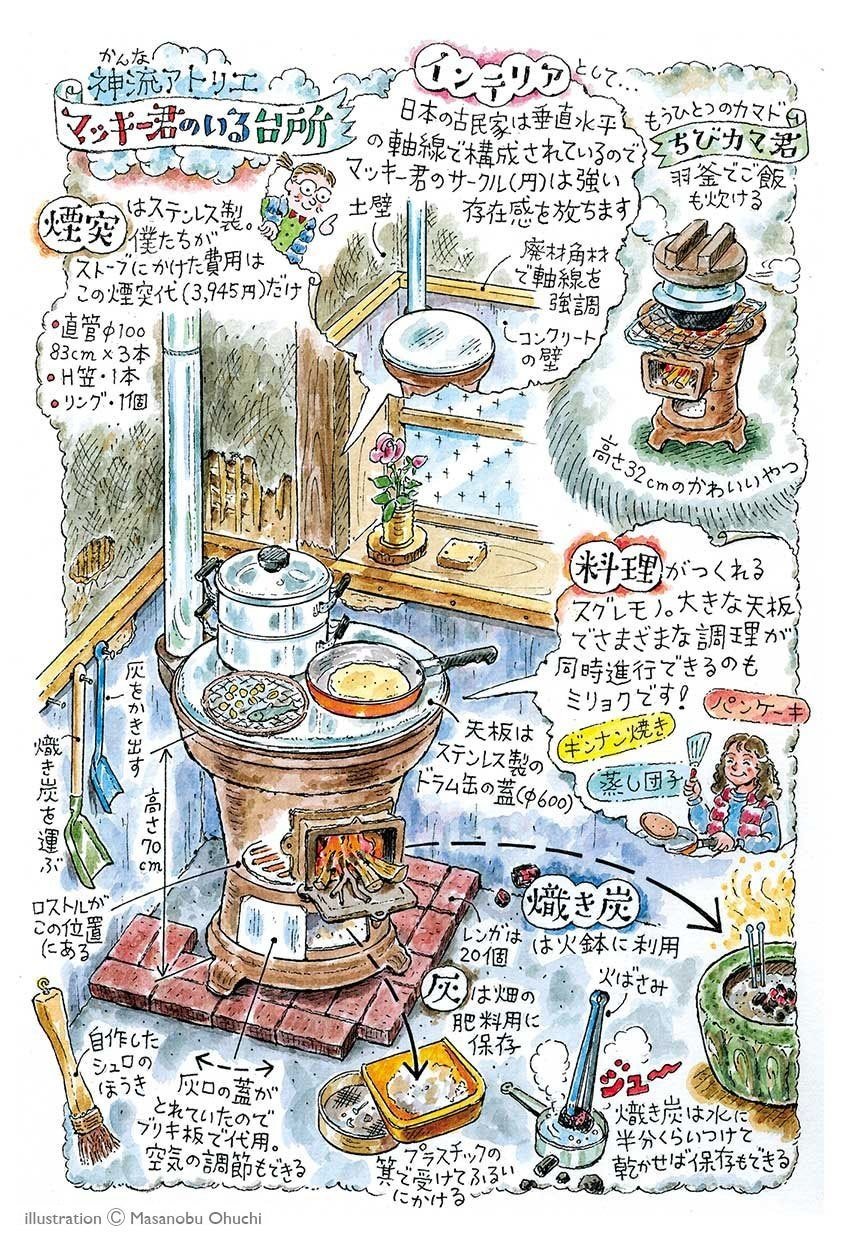 かんな
神流アトリエ
マッキー君のいる台所
インテリアとして…
日本の古民家は垂直水平
の軸線で構成されているので
マッキー君のサークル(円)は強い
存在感を放ちます
土壁
廃材角材
で軸線を
強調
コンクリート
の壁
もうひとつのカマド
ちびカマ君
羽釜でご飯
も炊ける
高さ32cmのかわいいやつ
煙突はステンレス製。
僕たちが
ストーブにかけた費用は
この煙突代(3,945円)だけ
•直管φ100
83cm×3本
•H笠・1本
•リング・1個
料理がつくれる
スグレモノ。大きな天板
でさまざまな調理が
同時進行できるのも
ミリョクです!
パンケーキ
ギンナン焼き
蒸し団子
天板は
ステンレス製の
ドラム缶の蓋(φ600)
灰をかき出す
熾き炭を運ぶ
高さ70cm
ロストルが
この位置
にある
レンガは
20個
熾き炭
は火鉢に利用
火ばさみ
灰は畑の
肥料用に
保存
自作した
シュロの
ほうき
灰口の蓋が
とれていたので
ブリキ板で代用。
空気の調節もできる
プラスチックの
箕で受けてふるい
にかける
ジュー
熾き炭は水に
半分くらいつけて
乾かせば保存もできる
illustration © Masanobu Ohuchi